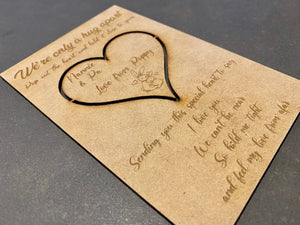 We're only a hug apart
Pop out the heart and hold it close to your
Nannie
& Pa
Love from Poppy
Sending you this special heart to say
I love you
We can't be near
So hold me tight
and feel my love from afar